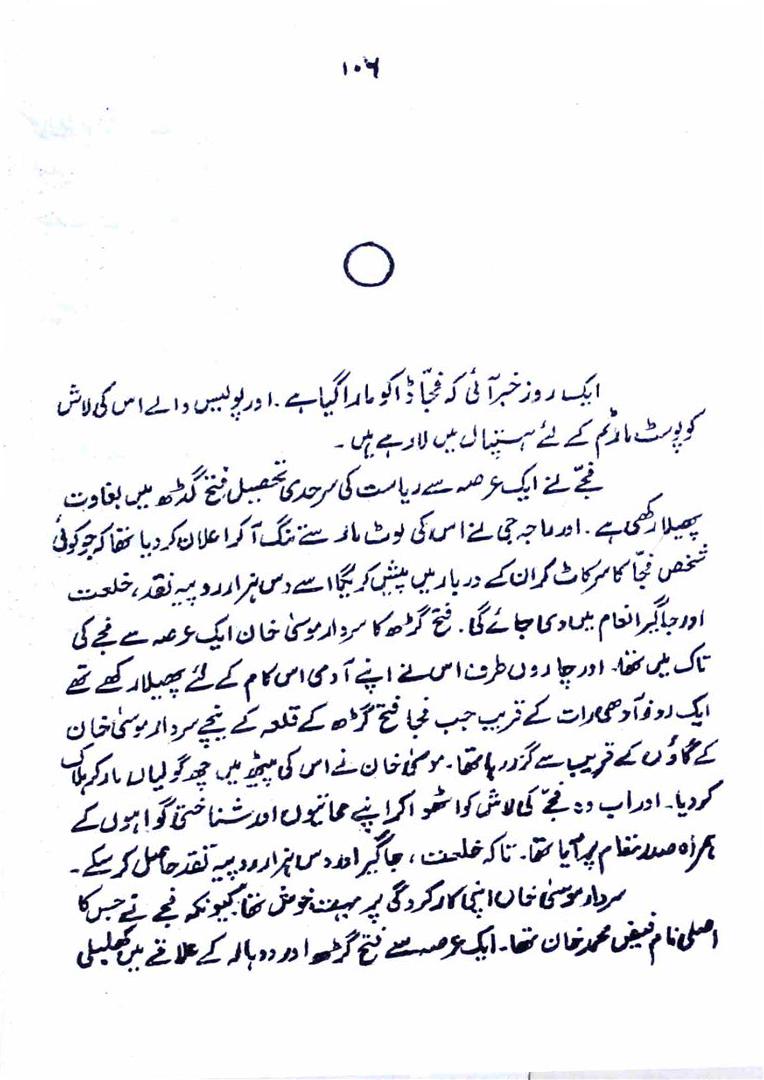 ۱۰۶
ایک روز خبر آئی کہ فجّا ڈاکو مارا گیا ہے۔ اور پولیس والے اس کی لاش
کو پوسٹ مارٹم کے لئے ہسپتال میں لا رہے ہیں۔
فجّے نے ایک عرصہ سے ریاست کی سرحدی تحصیل فتح گڈھ میں بغاوت
پھیلا رکھی ہے۔ اور راجہ جی نے اس کی لوٹ مار سے تنگ آ کر اعلان کر دیا تھا کہ جو کوئی
شخص فجّا کا سر کاٹ کر ان کے دربار میں پیش کریگا اسے دس ہزار روپیہ نقد، خلعت
اور جاگیر انعام میں دی جائے گی۔ فتح گڑھ کا سردار موسیٰ خان ایک عرصہ سے فجے کی
تاک میں تھا۔ اور چاروں طرف اس نے اپنے آدمی اس کام کے لئے پھیلا رکھے تھے
ایک روز آدھی رات کے قریب جب فجا فتح گڑھ کے قلعہ کے نیچے سردار موسیٰ خان
کے گاؤں کے قریب سے گزر رہا تھا۔ موسیٰ خان نے اس کی پیٹھ میں چھ گولیاں مار کر ہلاک
کر دیا۔ اور اب وہ فجے کی لاش کو اٹھوا کر اپنے حمائتیوں اور شناختی گواہوں کے
ہمراہ صدر مقام پر آیا تھا۔ تاکہ خلعت، جاگیر اور دس ہزار روپیہ نقد حاصل کر سکے۔
سردار موسیٰ خاں اپنی کارکردگی پر بہت خوش تھا کیونکہ فجے نے جس کا
اصلی نام فیض محمد خان تھا۔ ایک عرصہ سے فتح گڑھ اور دوہالہ کے علاقے میں کھلبلی